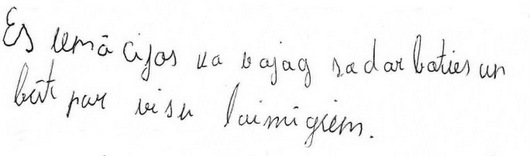 Es iemācijos ka vajag sadarboties un
būt par visu laimīgiem.